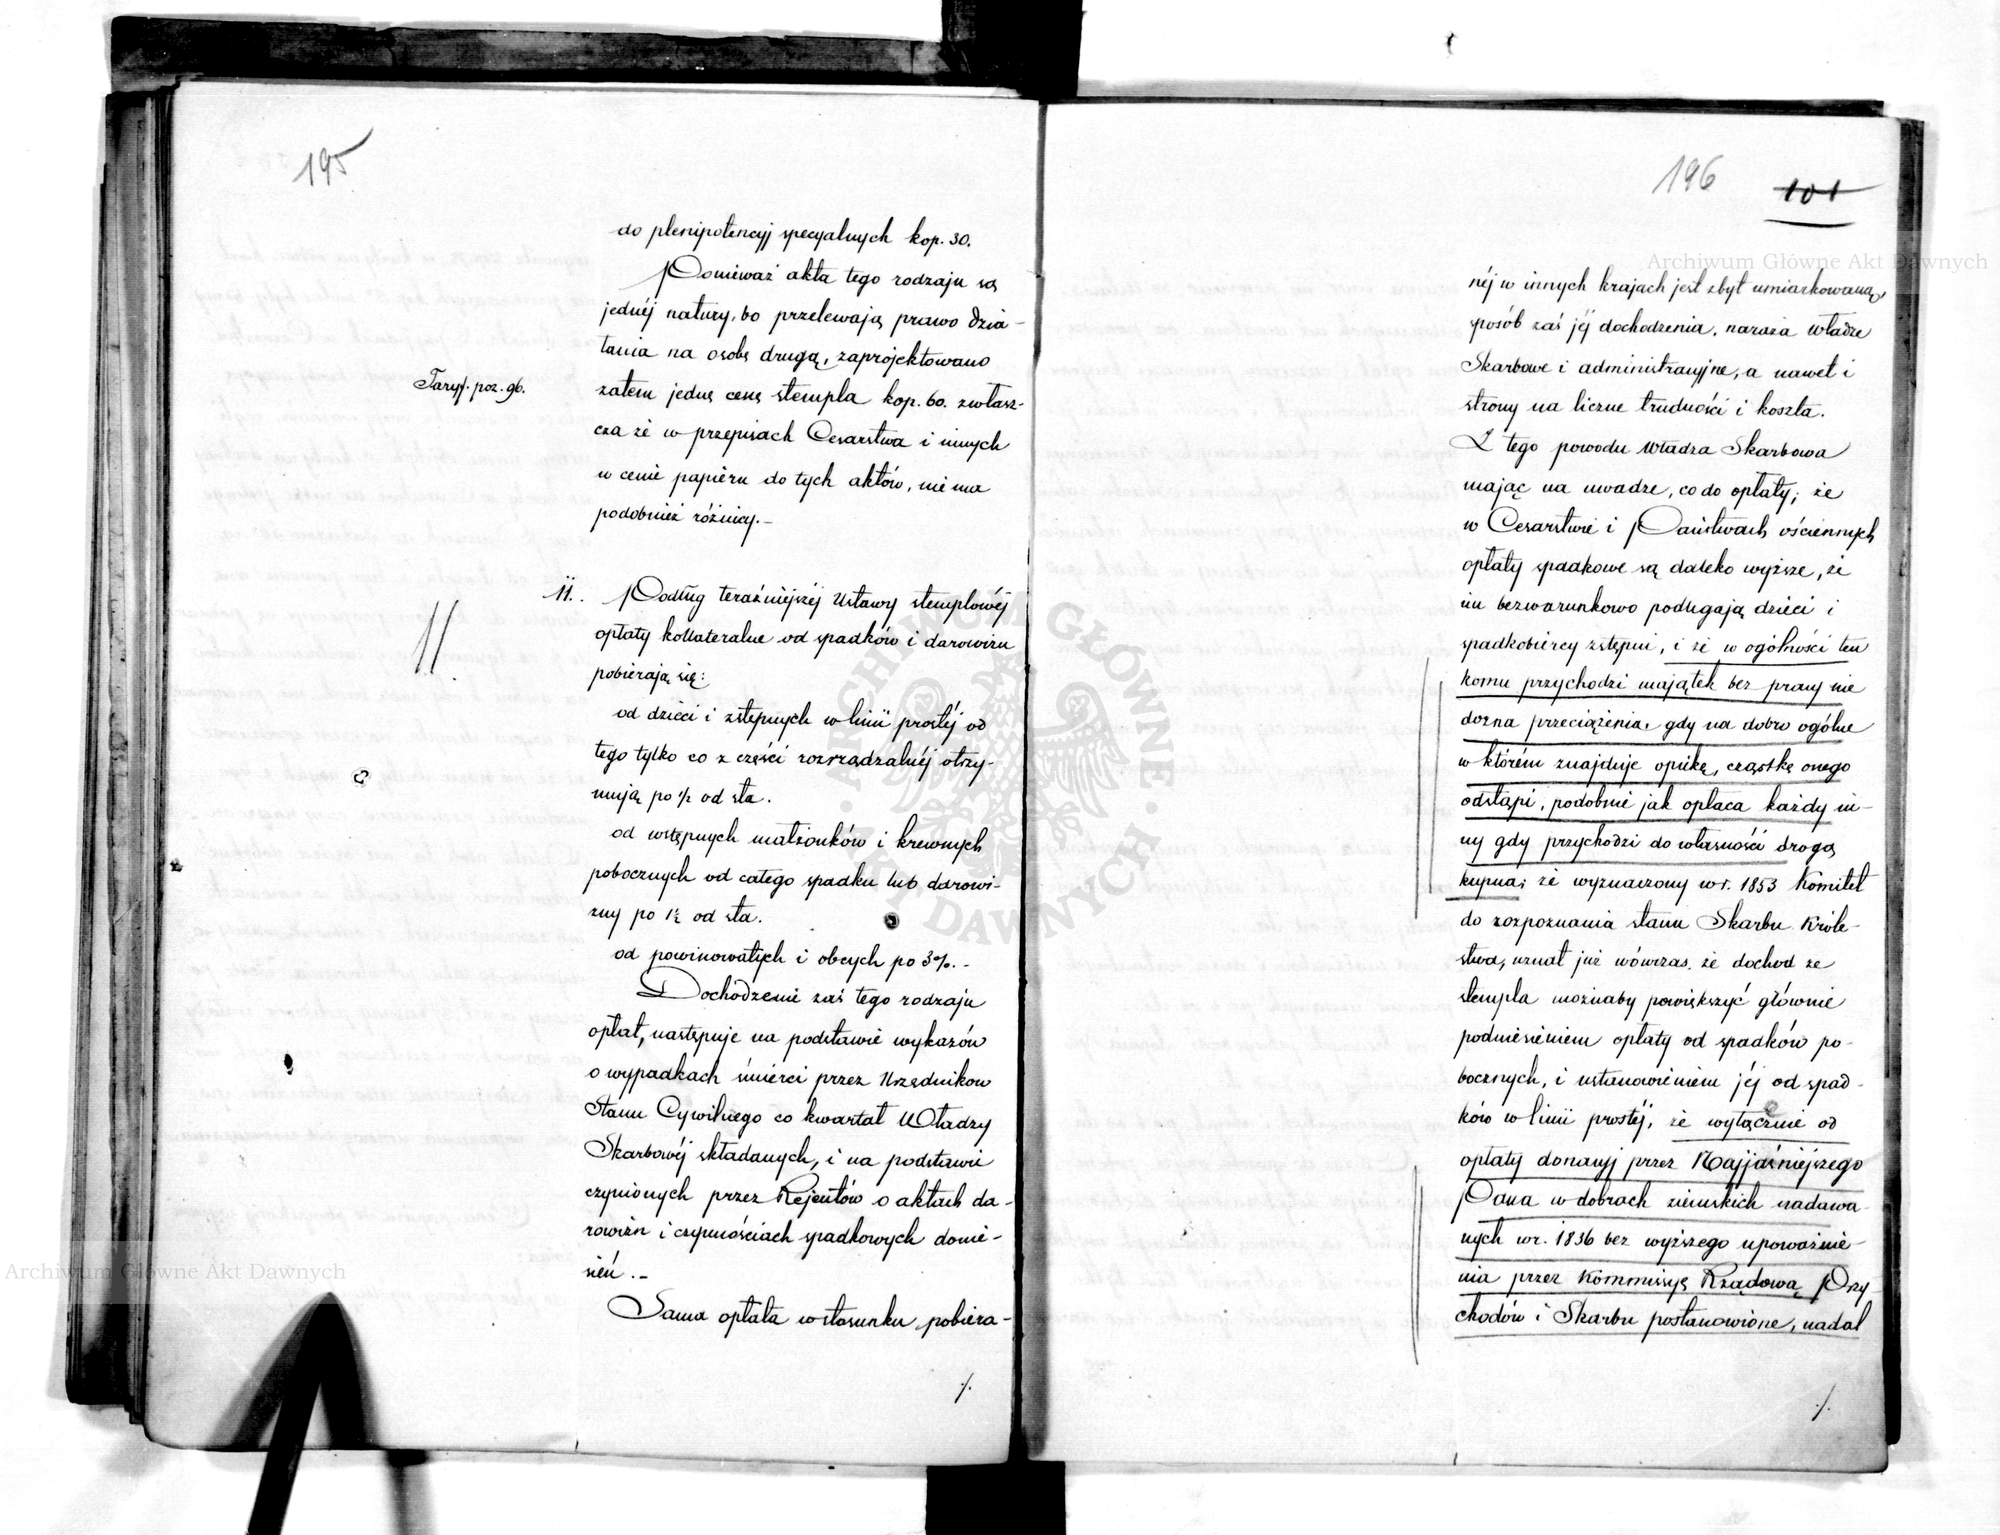 195
do plenipotencyj specyalnych kop. 30.
Ponieważ akta tego rodzaju są
jednéj natury, bo przelewają prawo dzia-
łania na osobę drugą, zaprojektowano
Taryf. poz. 96.
zatem jednę cenę stempla kop. 60. zwłasz-
cza że w przepisach Cesarstwa i innych
w cenie papieru do tych aktów, nie ma
podobnież różnicy.-
11.
11. Podług teraźniejszéj Ustawy stemplowéj
opłaty kollateralne od spadków i darowizn
pobierają się:
od dzieci i zstępnych w linii prostéj od
tego tylko co z części rozrządzalnéj otrzy-
mują po ½ od sta.
od wstępnych małżonków i krewnych
pobocznych od całego spadku lub darowi-
zny po 1½ od sta.
od powinowatych i obcych po 3%.-
Dochodzenie zaś tego rodzaju
opłat, następuje na podstawie wykazów
o wypadkach śmierci przez Urzędników
Stanu Cywilnego co kwartał Władzy
Skarbowéj składanych, i na podstawie
czynionych przez Rejentów o aktach da-
rowizn i czynnościach spadkowych donie-
sień.-
Sama opłata w stosunku pobiera-
./.
196
101
néj w innych krajach jest zbyt umiarkowaną,
sposób zaś jéj dochodzenia, naraża Władze
Skarbowe i administracyjne, a nawet i
strony na liczne trudności i koszta.
Z tego powodu Władza Skarbowa
mając na uwadze, co do opłaty; że
w Cesarstwie i Państwach ościennych
opłaty spadkowe są daleko wyższe, że
im bezwarunkowo podlegają dzieci i
spadkobiercy zstępni, i że w ogólności ten
komu przychodzi majątek bez pracy nie
dozna przeciążenia, gdy na dobro ogólne
w którém znajduje opiekę, cząstkę onego
odstąpi, podobnie jak opłaca każdy in-
ny gdy przychodzi do własności drogą
kupna; że wyznaczony w r. 1853 Komitet
do rozpoznania stanu Skarbu Króle-
stwa, uznał już wówczas, że dochod ze
stempla możnaby powiększyć głównie
podniesieniem opłaty od spadków po-
bocznych, i ustanowieniem jéj od spad-
ków w linii prostéj, że wyłącznie od
opłaty donacyj przez Najjaśniejszego
Pana w dobrach ziemskich nadawa-
nych w r. 1836 bez wyższego upoważnie-
nia przez Kommissyę Rządową Przy-
chodów i Skarbu postanowione, nadal
./.
Archiwum Główne Akt Dawnych
Archiwum Główne Akt Dawnych
ARCHIWUM GŁÓWNE AKT DAWNYCH